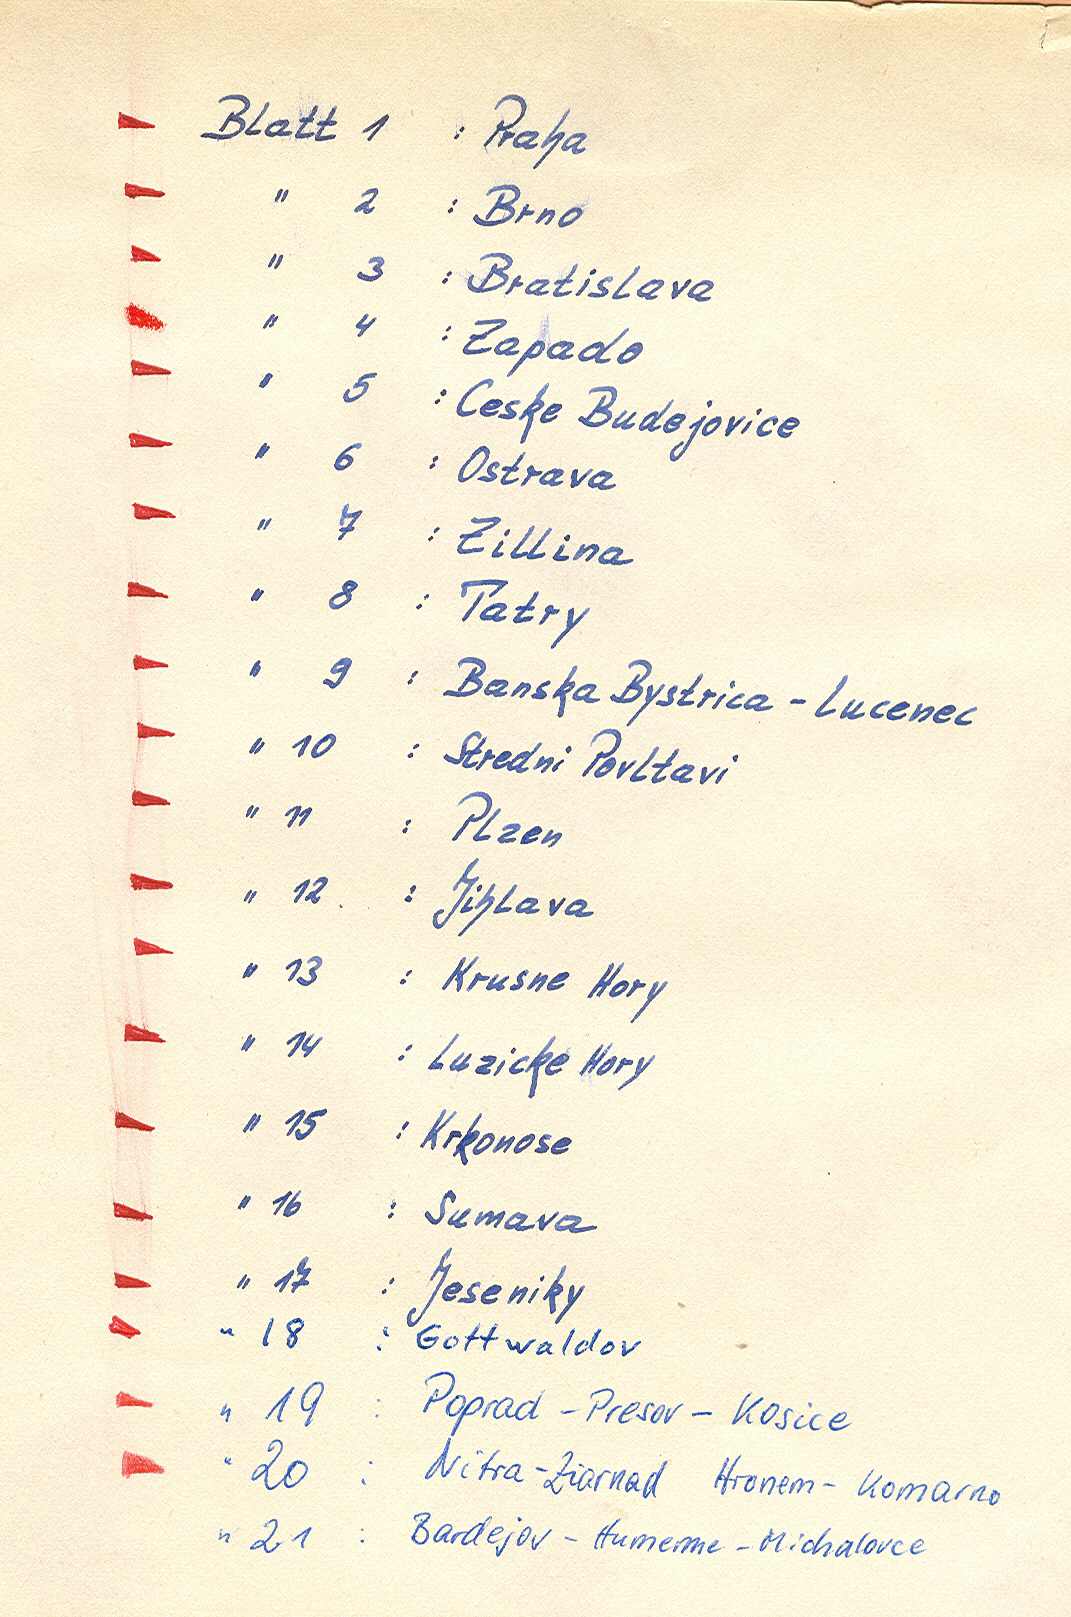 Blatt 1 : Praha
" 2 : Brno
" 3 : Bratislava
" 4 : Zapado
" 5 : Ceske Budejovice
" 6 : Ostrava
" 7 : Zillina
" 8 : Tatry
" 9 : Banska Bystrica - Lucenec
" 10 : Stredni Povltavi
" 11 : Plzen
" 12 : Jihlava
" 13 : Krusne Hory
" 14 : Luzicke Hory
" 15 : Krkonose
" 16 : Sumava
" 17 : Jeseniky
" 18 : Gottwaldov
" 19 : Poprad - Presov - Kosice
" 20 : Nitra - Ziarnad Hronem - Komarno
" 21 : Bardejov - Humenne - Michalovce